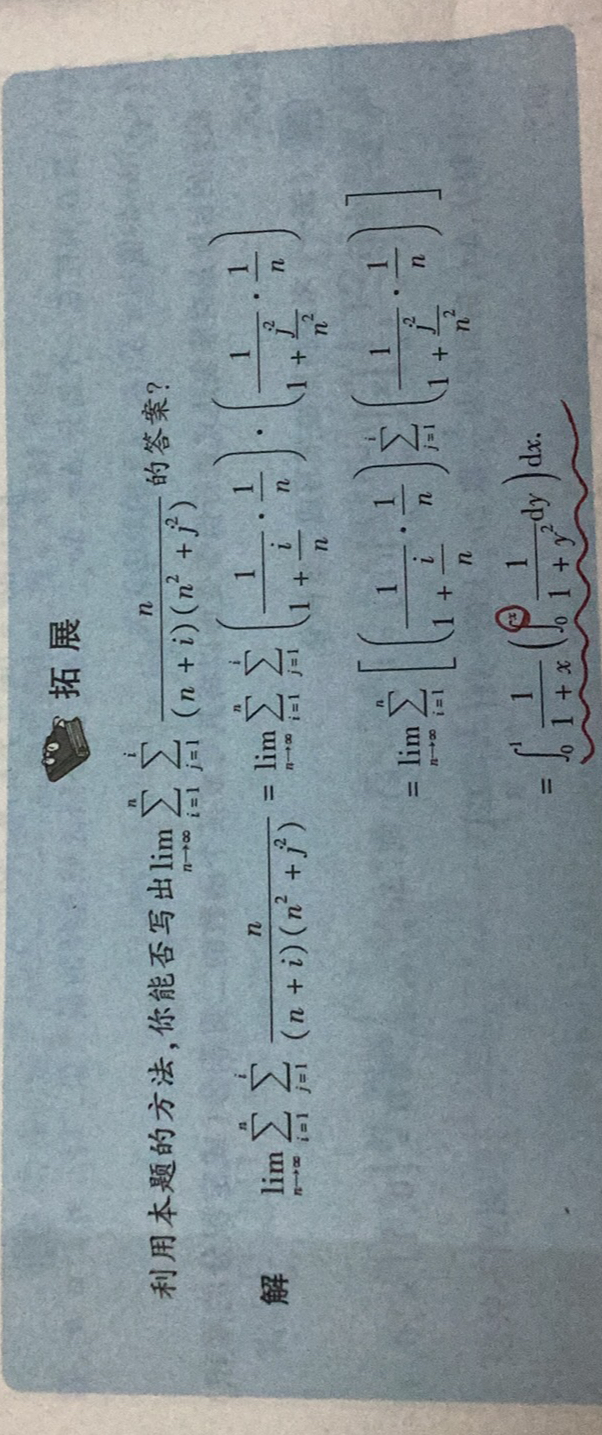 拓展
利用本题的方法,你能否写出 $\lim\limits_{n\to\infty}\sum\limits_{i=1}^{n}\sum\limits_{j=1}^{i}\frac{n}{(n+i)(n^2+j^2)}$ 的答案?
解 $\lim\limits_{n\to\infty}\sum\limits_{i=1}^{n}\sum\limits_{j=1}^{i}\frac{n}{(n+i)(n^2+j^2)}=\lim\limits_{n\to\infty}\sum\limits_{i=1}^{n}\sum\limits_{j=1}^{i}\left(\frac{1}{1+\frac{i}{n}}\cdot\frac{1}{n}\right)\cdot\left(\frac{1}{1+\frac{j^2}{n^2}}\cdot\frac{1}{n}\right)$
$=\lim\limits_{n\to\infty}\sum\limits_{i=1}^{n}\left[\left(\frac{1}{1+\frac{i}{n}}\cdot\frac{1}{n}\right)\sum\limits_{j=1}^{i}\left(\frac{1}{1+\frac{j^2}{n^2}}\cdot\frac{1}{n}\right)\right]$
$=\int_0^1\frac{1}{1+x}\left(\int_0^x\frac{1}{1+y^2}\mathrm{d}y\right)\mathrm{d}x.$